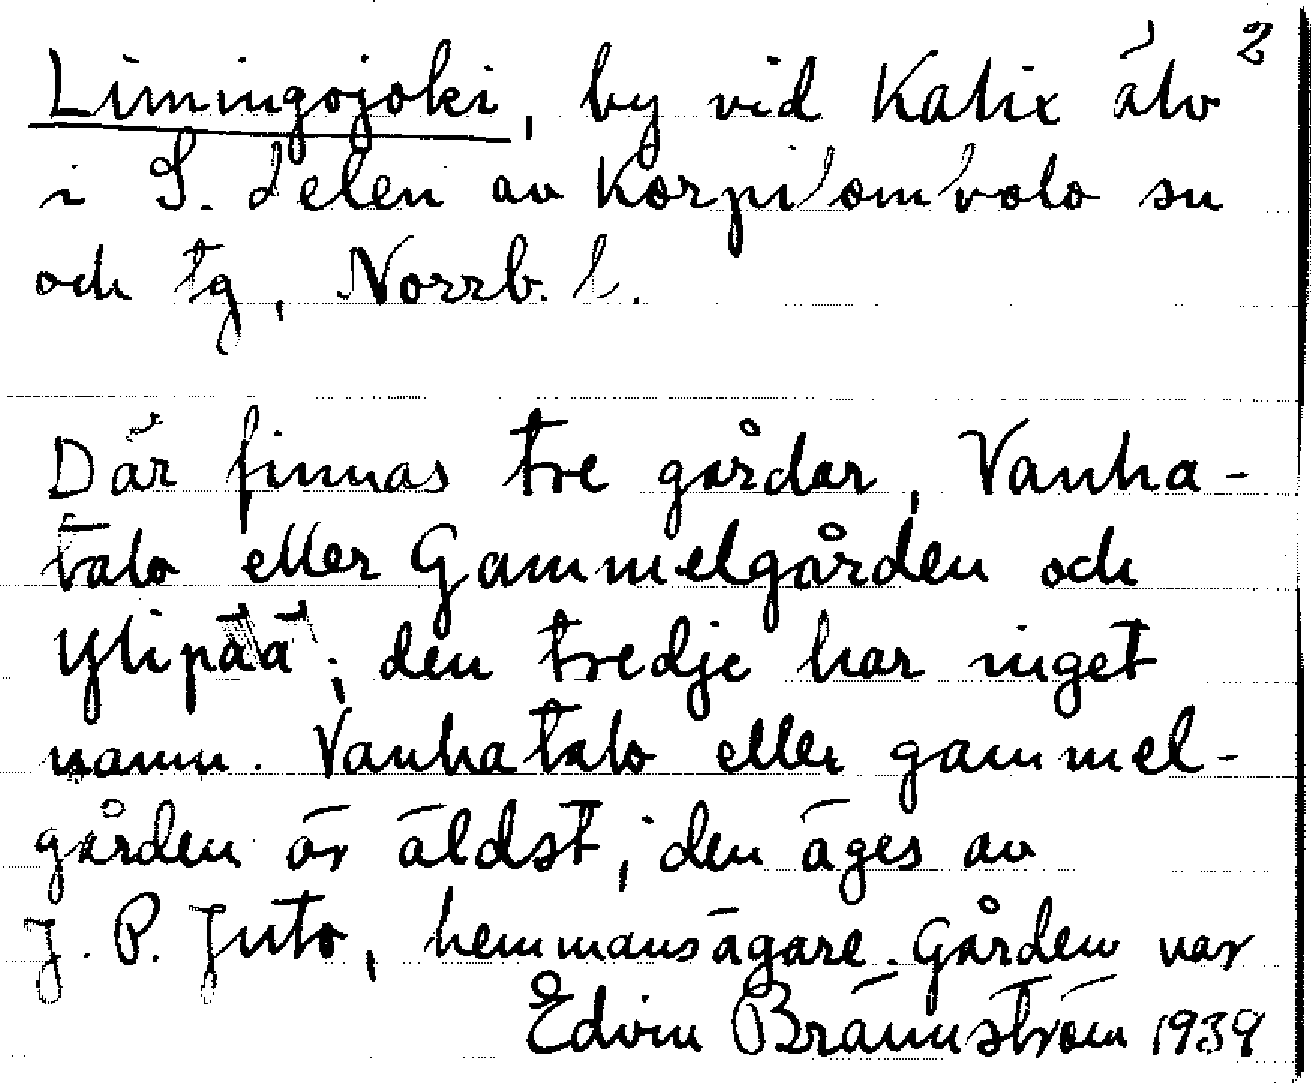 2
Limingojoki, by vid Kalix älv
i S. delen av Korpilombolo sn
och tg, Norrb. l.
Där finnas tre gårdar, Vanha-
talo eller Gammelgården och
Ylipää; den tredje har inget
namn. Vanhatalo eller gammel-
gården är äldst; den äges av
J. P. Juto, hemmansägare. Gården var
Edvin Brännström 1939